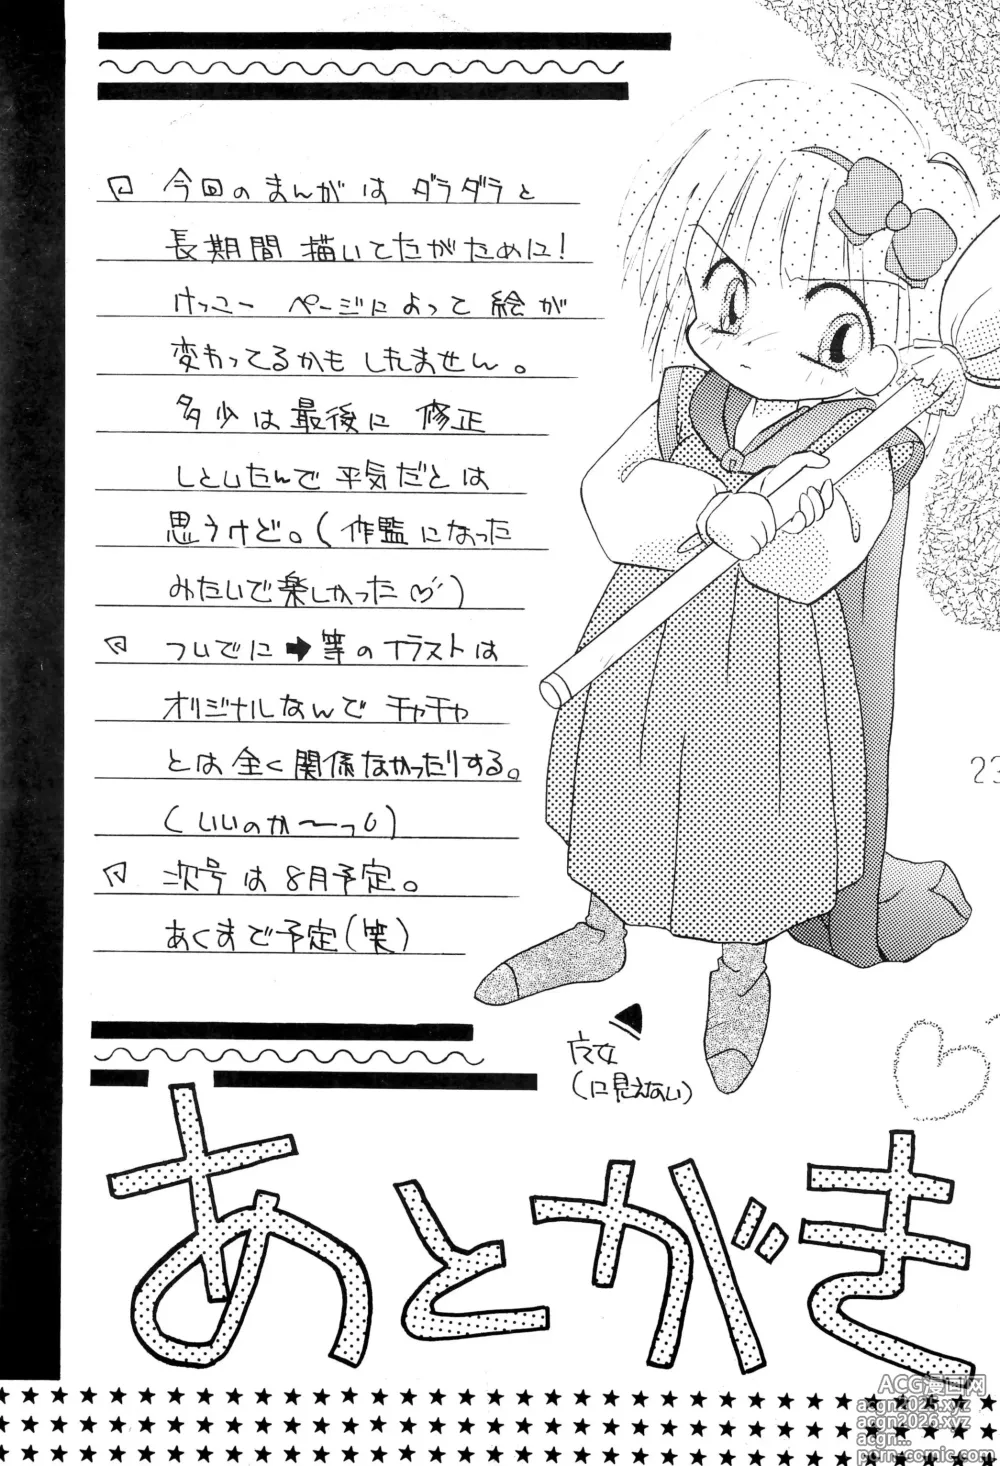 今回のまんがは ダラダラと
長期間 描いてたがために!
けっこー ページによって 絵が
変わってるかも しれません。
多少は最後に 修正
しとしたんで 平気だとは
思うけど。(作監になった
みたいで楽しかった♡)
ついでに➡等のイラストは
オリジナルなんで チャチャ
とは 全く関係なかったりする。
(いいのか〜っ)
次号は 8月予定。
あくまで予定(笑)
23
(に見えない)
あとがき
ACG漫画网
acgn2025.xyz
acgn2026.xyz
acgn...
porn-comic.com